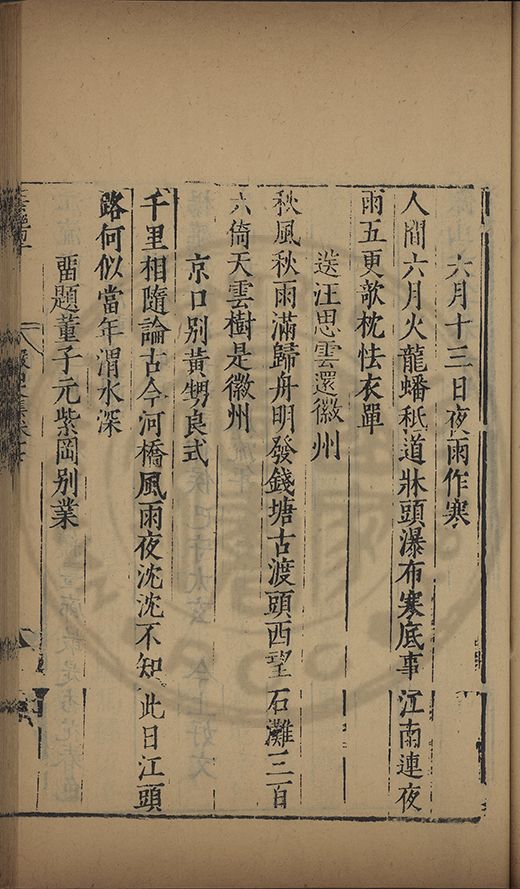 六月十三日夜雨作寒
人間六月火龍蟠秪道牀頭瀑布寒底事江南連夜
雨五更欹枕怯衣單
送汪思雲還徽州
秋風秋雨滿歸舟明發錢塘古渡頭西望石灘三百
六倚天雲樹是徽州
京口别黃甥良式
千里相隨論古今河橋風雨夜沈沈不知此日江頭
路何似當年渭水深
畱題董子元紫岡别業